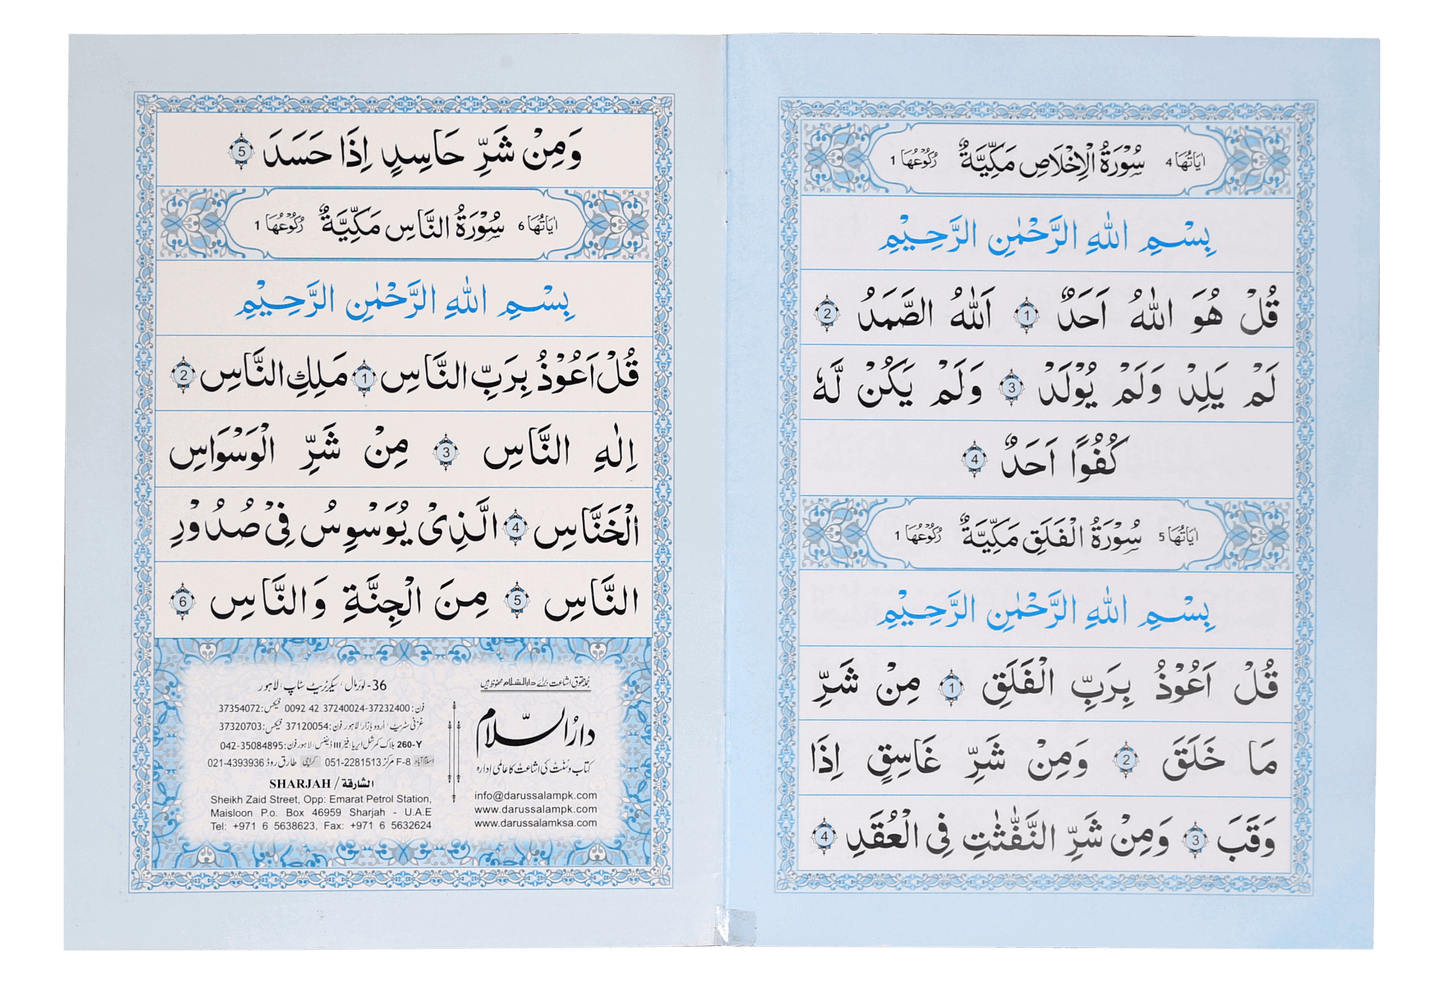 سُوْرَةُ الْاِخْلَاصِ مَكِّيَّةٌ
اٰيَاتُهَا 4
رُكُوْعُهَا 1
بِسْمِ اللّٰهِ الرَّحْمٰنِ الرَّحِيْمِ
قُلْ هُوَ اللّٰهُ اَحَدٌ 1 اَللّٰهُ الصَّمَدُ 2
لَمْ يَلِدْ وَلَمْ يُوْلَدْ 3 وَلَمْ يَكُنْ لَّهٗ
كُفُوًا اَحَدٌ 4
سُوْرَةُ الْفَلَقِ مَكِّيَّةٌ
اٰيَاتُهَا 5
رُكُوْعُهَا 1
بِسْمِ اللّٰهِ الرَّحْمٰنِ الرَّحِيْمِ
قُلْ اَعُوْذُ بِرَبِّ الْفَلَقِ 1 مِنْ شَرِّ
مَا خَلَقَ 2 وَمِنْ شَرِّ غَاسِقٍ اِذَا
وَقَبَ 3 وَمِنْ شَرِّ النَّفّٰثٰتِ فِى الْعُقَدِ 4
وَمِنْ شَرِّ حَاسِدٍ اِذَا حَسَدَ 5
سُوْرَةُ النَّاسِ مَكِّيَّةٌ
اٰيَاتُهَا 6
رُكُوْعُهَا 1
بِسْمِ اللّٰهِ الرَّحْمٰنِ الرَّحِيْمِ
قُلْ اَعُوْذُ بِرَبِّ النَّاسِ 1 مَلِكِ النَّاسِ 2
اِلٰهِ النَّاسِ 3 مِنْ شَرِّ الْوَسْوَاسِ
الْخَنَّاسِ 4 الَّذِىْ يُوَسْوِسُ فِىْ صُدُوْرِ
النَّاسِ 5 مِنَ الْجِنَّةِ وَالنَّاسِ 6
جملہ حقوق اشاعت برائے دارالسلام محفوظ ہیں
دارُالسّلام
کتاب و سنّت کی اشاعت کا عالمی ادارہ
info@darussalampk.com
www.darussalampk.com
www.darussalamksa.com
36- لوئرمال، سیکرٹریٹ سٹاپ لاہور
فون: 0092 42 37240024-37232400 فیکس: 37354072
غزنی سٹریٹ، اُردو بازار لاہور فون: 37120054 فیکس: 37320703
260-Y بلاک کمرشل ایریا فیز III ڈیفنس، لاہور فون: 042-35084895
اسلام آباد F-8 مرکز 051-2281513 کراچی طارق روڈ 021-4393936
SHARJAH / الشارقة
Sheikh Zaid Street, Opp: Emarat Petrol Station,
Maisloon P.o. Box 46959 Sharjah - U.A.E
Tel: +971 6 5638623, Fax: +971 6 5632624